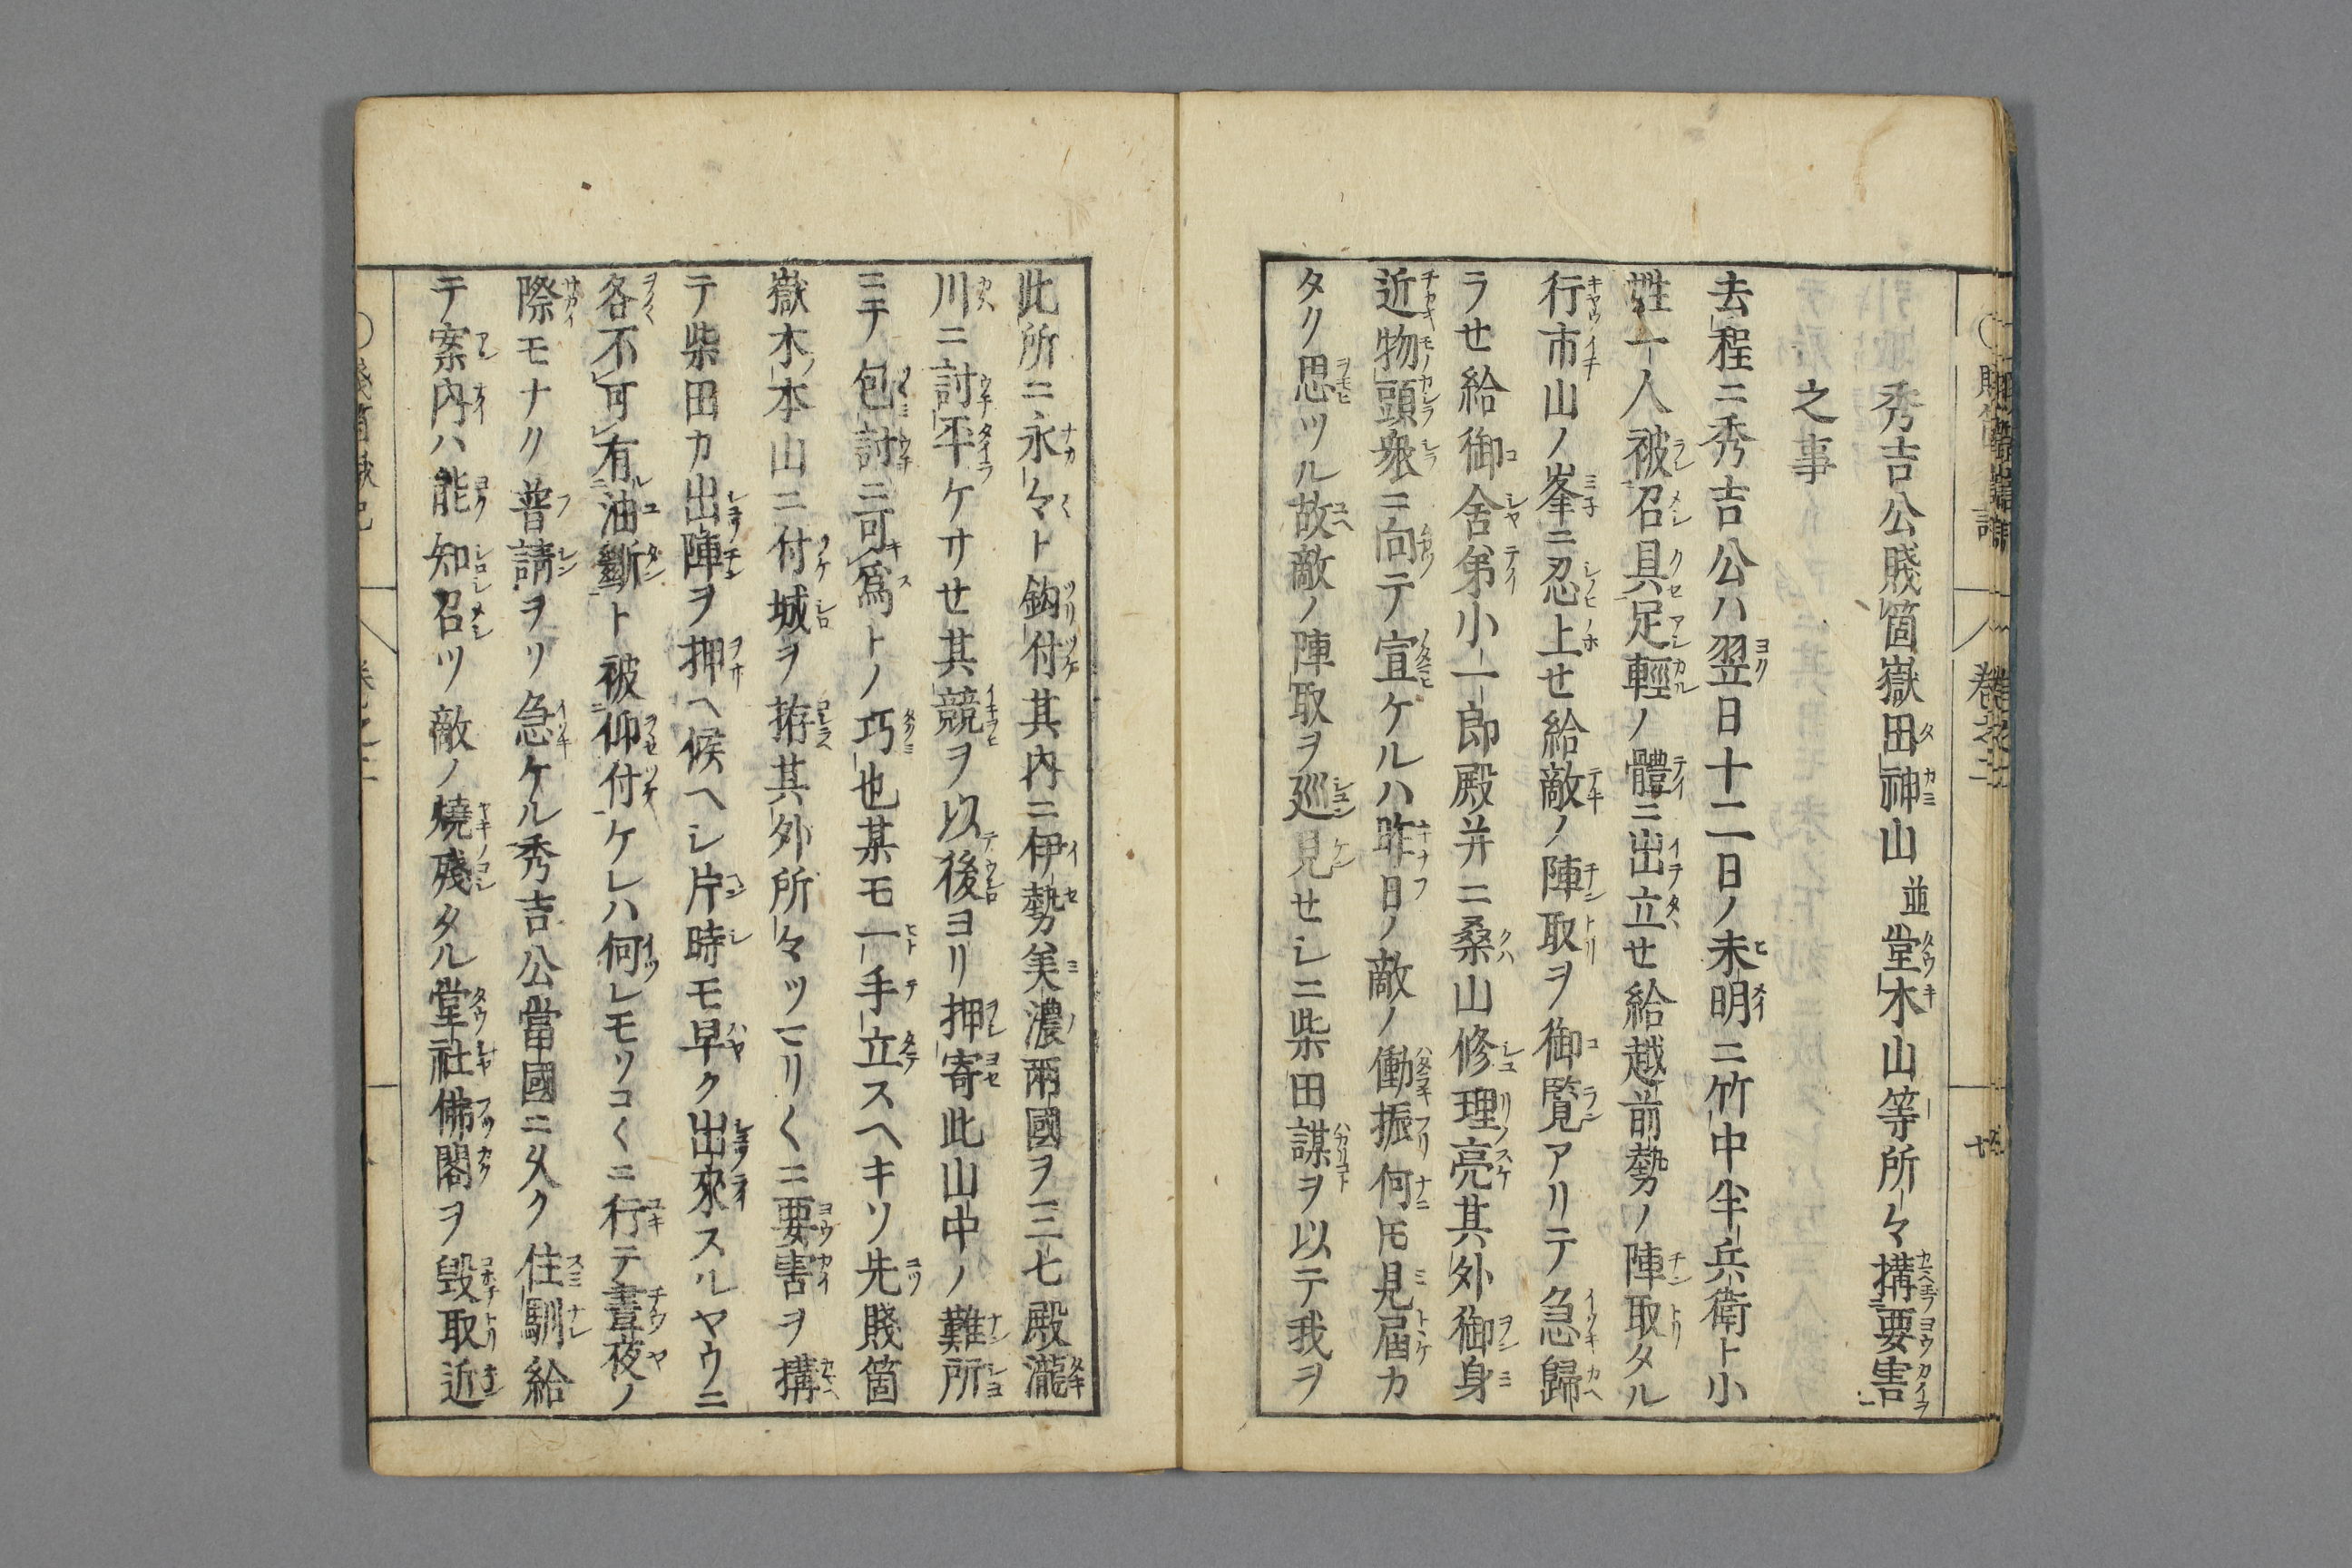 秀吉公賤箇嶽田神山並堂木山等所々搆要害
之事
去程ニ秀吉公ハ翌日十二日ノ未明ニ竹中半兵衛ト小
姓一人被召具足輕ノ體ニ出立せ給越前勢ノ陣取タル
行市山ノ峯ニ忍上せ給敵ノ陣取ヲ御覧アリテ急歸
ラせ給御舎弟小一郎殿并ニ桑山修理亮其外御身
近物頭衆ニ向テ宣ケルハ昨日ノ敵ノ働振何モ見届カ
タリ思ツル故敵ノ陣取ヲ廵見せシニ柴田謀ヲ以テ我ヲ
此所ニ永々ト鈎付其内ニ伊勢美濃兩國ヲ三七殿瀧
川ニ討平ケサせ其競ヲ以後ヨリ押寄此山中ノ難所
ニテ包討ニ可爲トノ巧也某モ一手立スヘキソ先賤箇
嶽木ノ本山ニ付城ヲ拵其外所々ツマリ〱ニ要害ヲ搆
テ柴田カ出陣ヲ押ヘ候ヘシ片時モ早ク出來スルヤウニ
各不可有油斷ト被仰付ケレハ何レモソコ〱ニ行テ晝夜ノ
際モナク普請ヲソ急ケル秀吉公當國ニ久ク住馴給
テ案内ハ能知召ツ敵ノ燒殘タル堂社佛閣ヲ毀取近